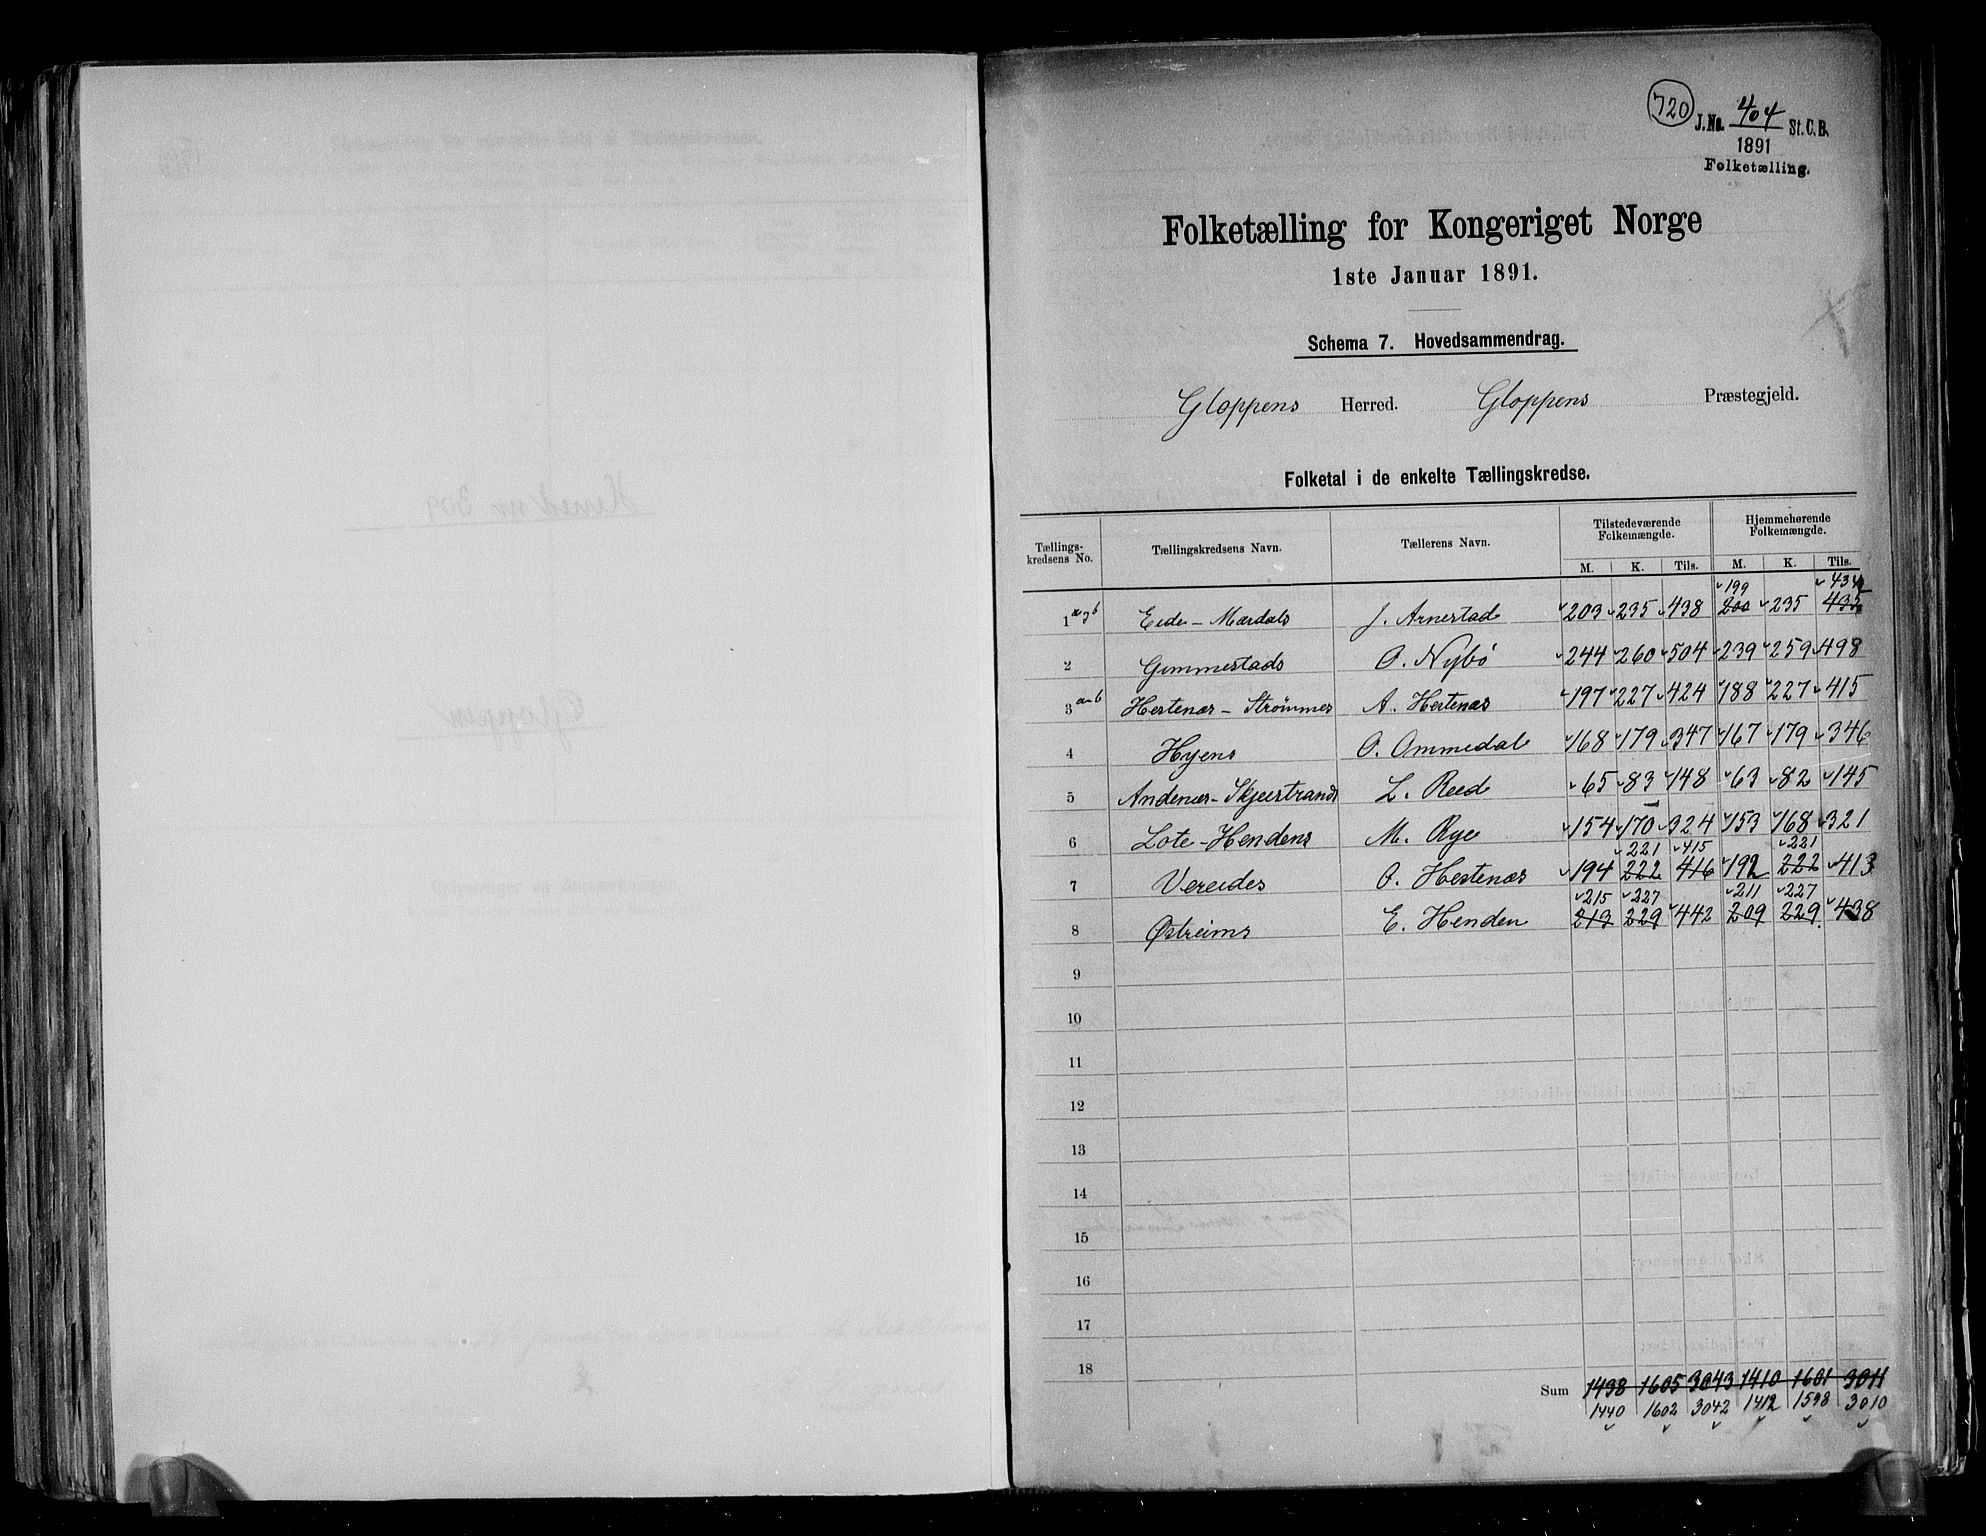 720
J. No. 404 St. C. B.
1891
Folketælling.
Folketælling for Kongeriget Norge
1ste Januar 1891.
Schema 7. Hovedsammendrag.
Gloppens Herred. Gloppens Præstegjeld.
Folketal i de enkelte Tællingskredse.
Tællings-kredsens No. Tællingskredsens Navn. Tællerens Navn. Tilstedeværende Folkemængde. Hjemmehørende Folkemængde.
M. K. Tils. M. K. Tils.
199 434
1 a og b Eide - Mardals J. Arnestad 203 235 438 200 235 435
2 Gimmestads O. Nybø 244 260 504 239 259 498
3 a-b Hestenæs - Strømmes A. Hestenæs 197 227 424 188 227 415
4 Hyens O. Ommedal 168 179 347 167 179 346
5 Andenæs - Skjerstrands L. Reed 65 83 148 63 82 145
6 Lote - Hendens M. Rye 154 170 324 153 168 321
221 415 221
7 Vereides O. Hestenæs 194 222 416 192 222 413
215 227 211 227
8 Østreims E. Henden 213 229 442 209 229 438
9
10
11
12
13
14
15
16
17
18
Sum 1438 1605 3043 1410 1601 3011
1440 1602 3042 1412 1598 3010